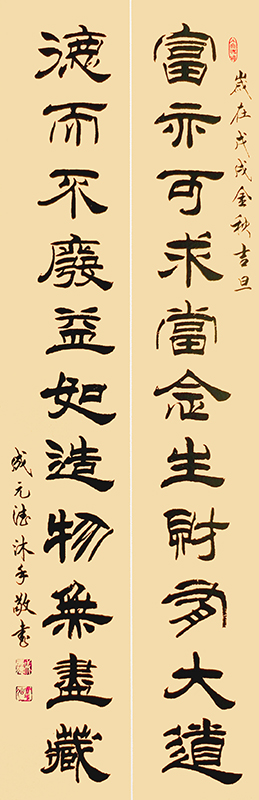 歲在戊戌金秋吉旦
富亦可求當念生財有大道
德而不廢益如造物無盡藏
成元德沐手敬書